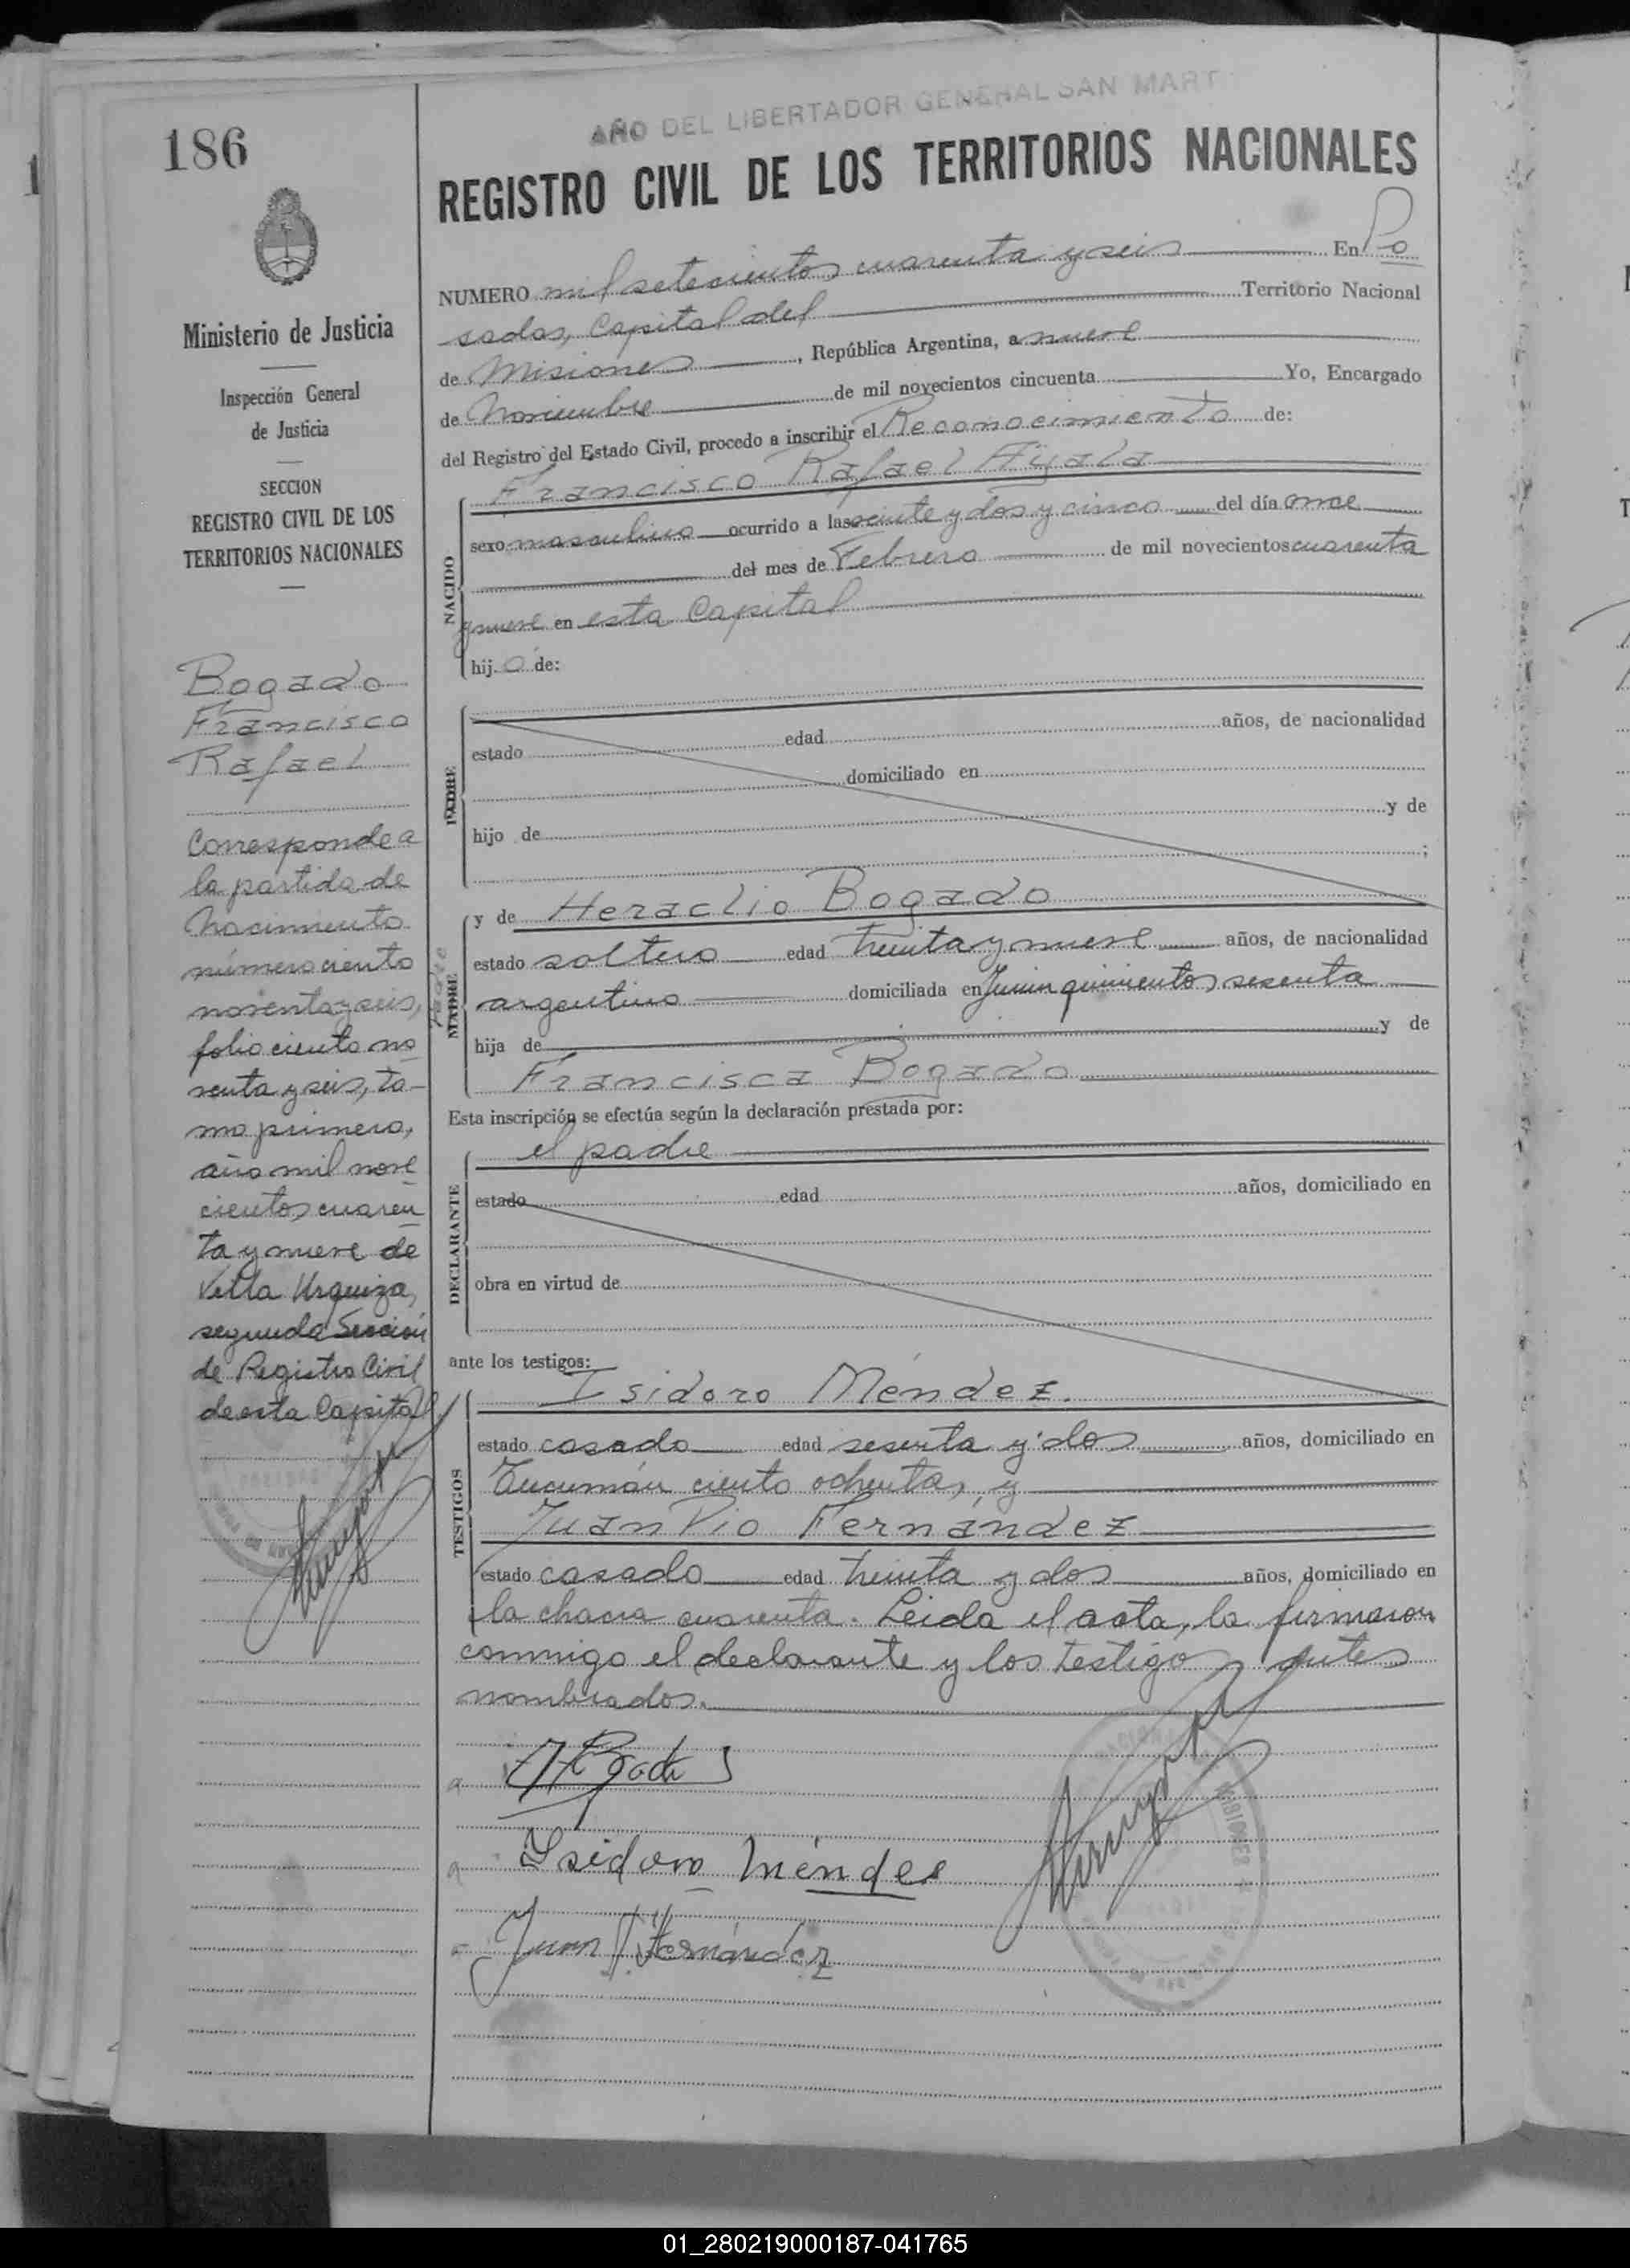 186
Ministerio de Justicia
Inspección General
de Justicia
SECCION
REGISTRO CIVIL DE LOS
TERRITORIOS NACIONALES
Bogado
Francisco
Rafael
Corresponde a
la partida de
Nacimiento
número ciento
noventa y seis,
folio ciento no
venta y seis, to-
mo primero,
año mil nove
cientos cuaren
ta y nueve de
Villa Urquiza,
segunda Sección
de Registro Civil
de esta Capital
AÑO DEL LIBERTADOR GENERAL SAN MART
REGISTRO CIVIL DE LOS TERRITORIOS NACIONALES
NUMERO mil setecientos cuarenta y seis En Po
sadas, Capital del Territorio Nacional
de Misiones, República Argentina, a nueve
de Noviembre de mil novecientos cincuenta Yo, Encargado
del Registro del Estado Civil, procedo a inscribir el Reconocimiento de:
Francisco Rafael Ayala
NACIDO
sexo masculino ocurrido a las veinte y dos y cinco del día once
del mes de Febrero de mil novecientos cuarenta
y nueve en esta Capital
hijo de:
PADRE
estado edad años, de nacionalidad
domiciliado en
hijo de y de
;
y de Heraclio Bogado
Padre
MADRE
estado soltero edad treinta y nueve años, de nacionalidad
argentino domiciliada en Junin quinientos sesenta
hija de y de
Francisca Bogado
Esta inscripción se efectúa según la declaración prestada por:
el padre
DECLARANTE
estado edad años, domiciliado en
obra en virtud de
ante los testigos:
Isidoro Méndez.
TESTIGOS
estado casado edad sesenta y dos años, domiciliado en
Tucumán ciento ochenta, y
Juan Pio Fernández
estado casado edad treinta y dos años, domiciliado en
la chacra cuarenta. Leida el acta, la firmaron
conmigo el declarante y los testigos antes
nombrados.
HBogado
Isidoro Méndes
Juan P. Fernández
01_280219000187-041765